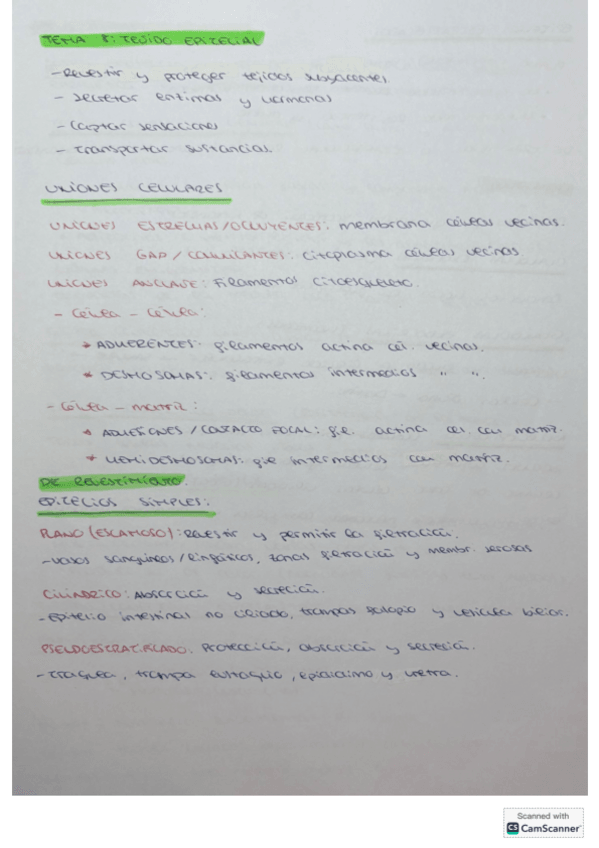 TEMA 8: TEJIDO EPITELIAL
- Revestir y proteger tejidos subyacentes.
- Secretar enzimas y hormonas
- Captar sensaciones
- Transportar sustancias.
UNIONES CELULARES
UNIONES ESTRECHAS/OCLUYENTES: membrana células vecinas.
UNIONES GAP / COMUNICANTES: citoplasma células vecinas
UNIONES ANCLAJE: Filamentos citoesqueleto.
- Célula - célula:
* ADHERENTES: filamentos actina cél. vecinas.
* DESMOSOMAS: filamentos intermedios " " .
- Célula - matriz:
* ADHESIONES / CONTACTO FOCAL: fil. actina cel. con matriz.
* HEMIDESMOSOMAS: fil intermedios con matriz.
DE REVESTIMIENTO.
EPITELIOS SIMPLES:
PLANO (ESCAMOSO): Revestir y permitir la filtración.
- vasos sanguíneos / linfáticos, zonas filtración y membr. serosas
CILINDRICO: Absorción y secreción.
- Epitelio intestinal no ciliado, trompas falopio y vesícula biliar.
PSEUDOESTRATIFICADO. Protección, absorción y secreción.
- Traquea, trompa eustaquio, epididimo y uretra.
Scanned with
CS CamScanner